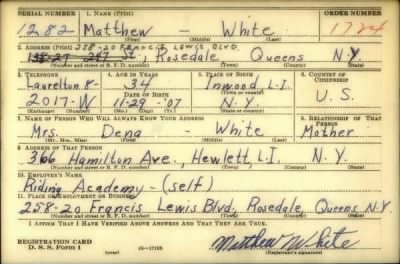 SERIAL NUMBER 1. NAME (Print) ORDER NUMBER
1282 Matthew - White 1724
(First) (Middle) (Last)
2. ADDRESS (Print) 258-20 FRANCIS LEWIS BLVD.
247 St. Rosedale Queens N.Y.
(Number and street or R. F. D. number) (Town) (County) (State)
3. TELEPHONE 4. AGE IN YEARS 5. PLACE OF BIRTH 6. COUNTRY OF CITIZENSHIP
Laurelton 8- 34 Inwood L.I.
DATE OF BIRTH
2017-W 11-29-'07 N.Y. U.S.
7. NAME OF PERSON WHO WILL ALWAYS KNOW YOUR ADDRESS 8. RELATIONSHIP OF THAT PERSON
Mrs. Dena - White Mother
(Mr., Mrs., Miss) (First) (Middle) (Last)
9. ADDRESS OF THAT PERSON
366 Hamilton Ave., Hewlett, L.I. N.Y.
(Number and street or R. F. D. number) (Town) (County) (State)
10. EMPLOYER'S NAME
Riding Academy - (self)
11. PLACE OF EMPLOYMENT OR BUSINESS
258-20 Francis Lewis Blvd. Rosedale, Queens N.Y.
(Number and street or R. F. D. number) (Town) (County) (State)
I AFFIRM THAT I HAVE VERIFIED ABOVE ANSWERS AND THAT THEY ARE TRUE.
REGISTRATION CARD
D. S. S. Form 1 (over) Matthew White
(Registrant's signature)